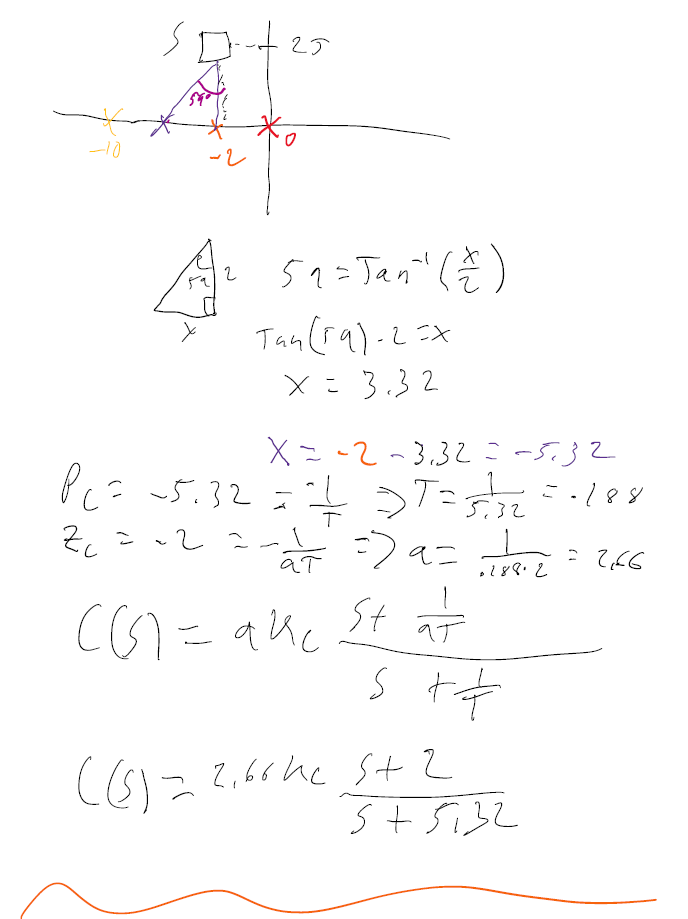 S 2J
59°
-10 -2 0
59 2 59 = Tan⁻¹(x/2)
x Tan(59)·2 = x
x = 3.32
X = -2 - 3.32 = -5.32
Pc = -5.32 = -1/T ⇒ T = 1/5.32 = .188
Zc = -2 = -1/aT ⇒ a = 1/.188·2 = 2.66
C(S) = aKc S + 1/aT / S + 1/T
C(S) = 2.66Kc S + 2 / S + 5.32